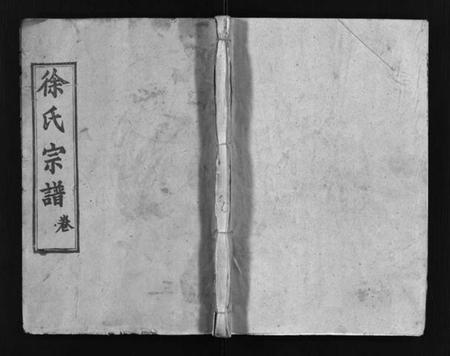 徐氏宗譜
卷